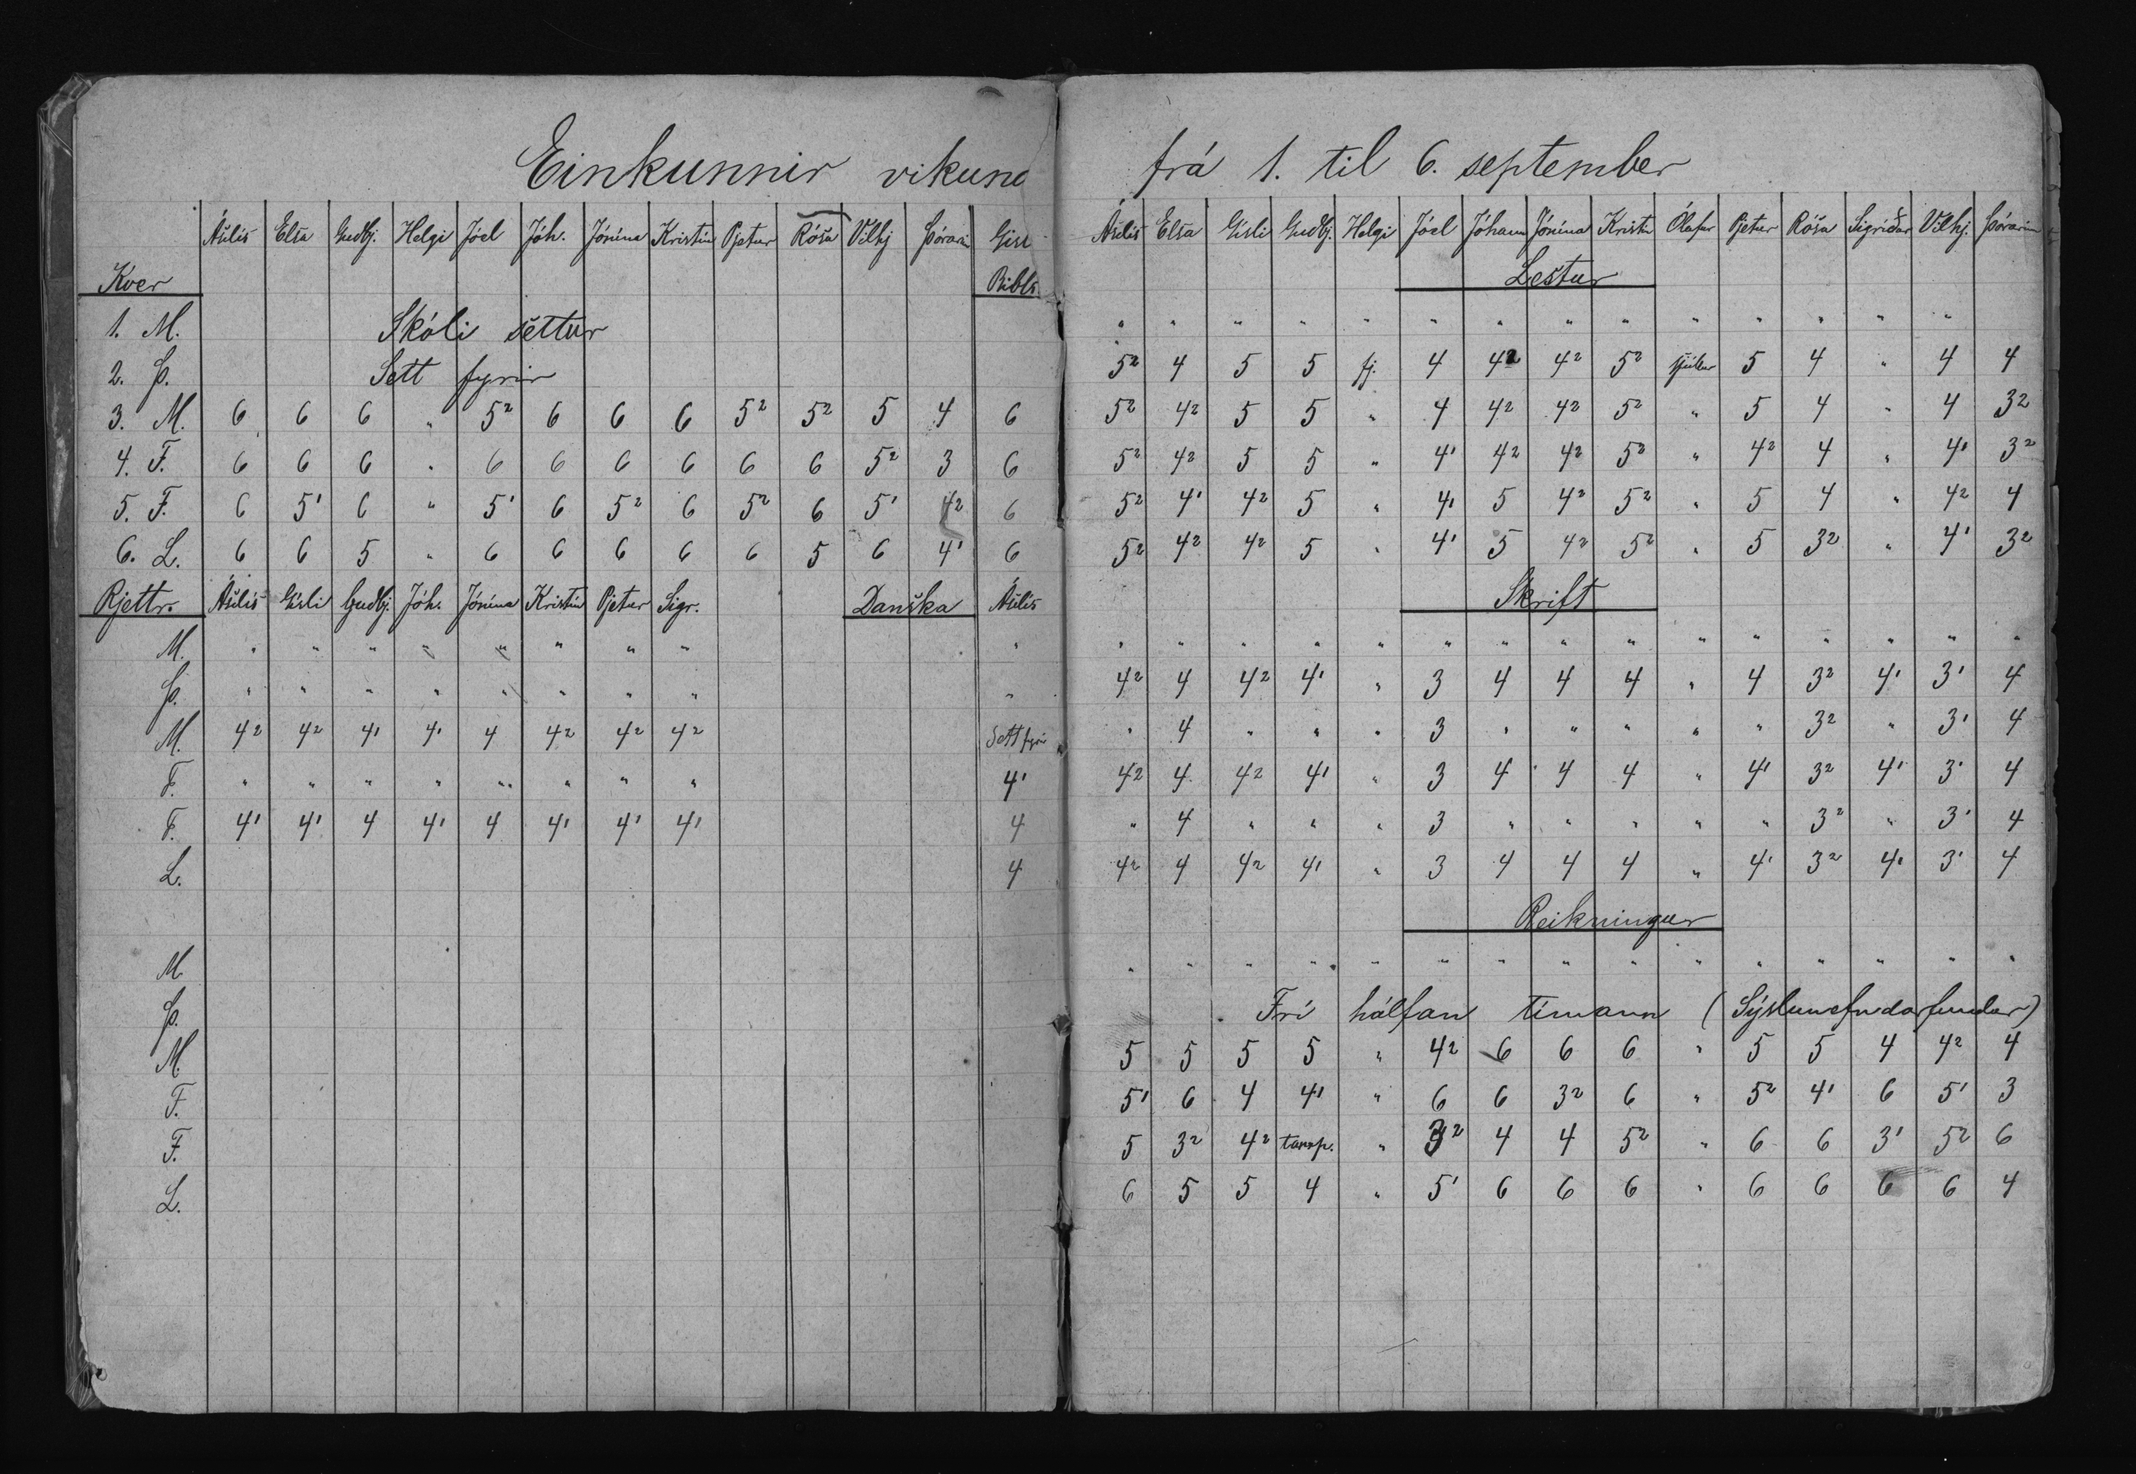 Einkunnir vikuna
Ásdís Elsa Guðbj. Helgi Jóel Jóh. Jónína Kristín Pjetur Rósa Vilhj Þórarin Gísl
Kver Bibls.
1. M. Skóli settur
2. Þ. Sett fyrir
3. M. 6 6 6 " 5² 6 6 6 5² 5² 5 4 6
4. F. 6 6 6 " 6 6 6 6 6 6 5² 3 6
5. F. 6 5¹ 6 " 5¹ 6 5² 6 5² 6 5¹ 4² 6
6. L. 6 6 5 " 6 6 6 6 6 5 6 4¹ 6
Rjettr. Ásdís Gísli Guðbj. Jóh. Jónína Kristín Pjetur Sigr. Danska Ásdís
M. " " " " " " " " "
Þ. " " " " " " " " "
M. 4² 4² 4¹ 4¹ 4 4² 4² 4² Sett fyrir
F. " " " " " " " " 4¹
F. 4¹ 4¹ 4 4¹ 4 4¹ 4¹ 4¹ 4
L. 4
M.
Þ.
M.
F.
F.
L.
frá 1. til 6. september
Ásdís Elsa Gísli Guðbj. Helgi Jóel Jóhann Jónína Kristín Ólafur Pjetur Rósa Sigríður Vilhj. Þórarin
Lestur
" " " " " " " " " " " " " "
5² 4 5 5 fj. 4 4² 4² 5² sjúkur 5 4 " 4 4
5² 4² 5 5 " 4 4² 4² 5² " 5 4 " 4 3²
5² 4² 5 5 " 4¹ 4² 4² 5² " 4² 4 " 4¹ 3²
5² 4¹ 4² 5 " 4¹ 5 4² 5² " 5 4 " 4² 4
5² 4² 4² 5 " 4¹ 5 4² 5² " 5 3² " 4¹ 3²
Skrift
" " " " " " " " " " " " " " "
4² 4 4² 4¹ " 3 4 4 4 " 4 3² 4¹ 3¹ 4
" 4 " " " 3 " " " " " 3² " 3¹ 4
4² 4 4² 4¹ " 3 4 4 4 " 4¹ 3² 4¹ 3¹ 4
" 4 " " " 3 " " " " " 3² " 3¹ 4
4² 4 4² 4¹ " 3 4 4 4 " 4¹ 3² 4¹ 3¹ 4
Reikningur
" " " " " " " " " " " " " " "
Frí hálfan tímann (Sýslunefndarfundur)
5 5 5 5 " 4² 6 6 6 " 5 5 4 4² 4
5¹ 6 4 4¹ " 6 6 3² 6 " 5² 4¹ 6 5¹ 3
5 3² 4² " 3² 4 4 5² " 6 6 3¹ 5² 6
6 5 5 4 " 5¹ 6 6 6 " 6 6 6 6 4